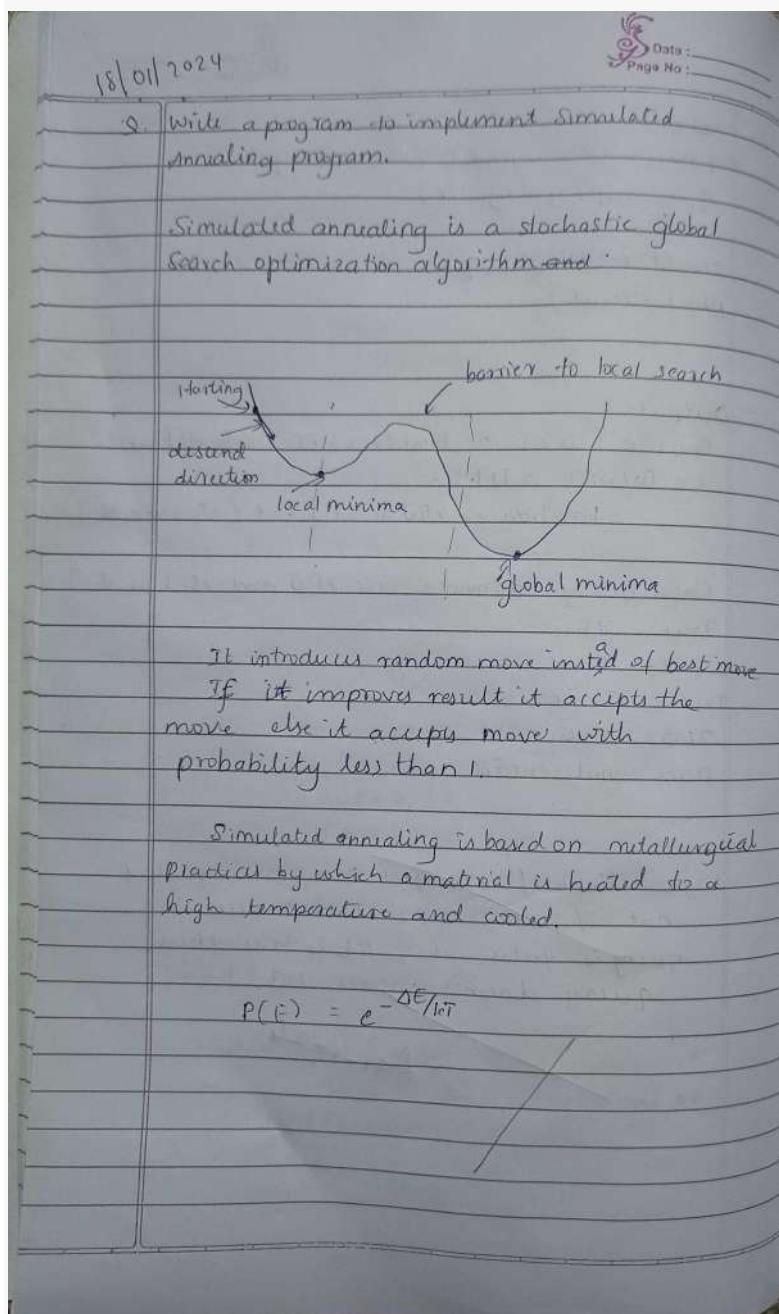 Date :
Page No :
18/01/2024
Q. Write a program to implement Simulated
Annealing program.
Simulated annealing is a stochastic global
search optimization algorithm and .
barrier to local search
starting
descend
direction
local minima
global minima
It introduces random move instead of best move
If it improves result it accepts the
move else it accepts move with
probability less than 1.
Simulated annealing is based on metallurgical
practices by which a material is heated to a
high temperature and cooled.
P(E) = e^-ΔE/kT